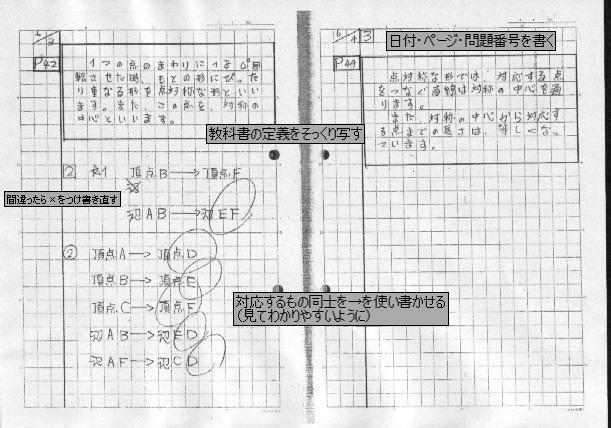 6/3
P42
1つの点のまわりに180°回
転させた時、もとの形にぴった
り重なる形を点対称な形といい
ます。また、この点を、対称の
中心といいます。
教科書の定義をそっくり写す
② 例 頂点B→頂点F
間違ったら×をつけ書き直す
辺AB→辺EF
② 頂点A→頂点D
頂点B→頂点E
頂点C→頂点F
辺AB→辺ED
辺AF→辺CD
6/4 3
日付・ページ・問題番号を書く
P44
点対称な形では、対応する点
をつなぐ直線は対称の中心を通
ります。
また、対称の中心から対応す
る点までの長さは、等しくな
っています。
対応するもの同士を→を使い書かせる
（見てわかりやすいように）